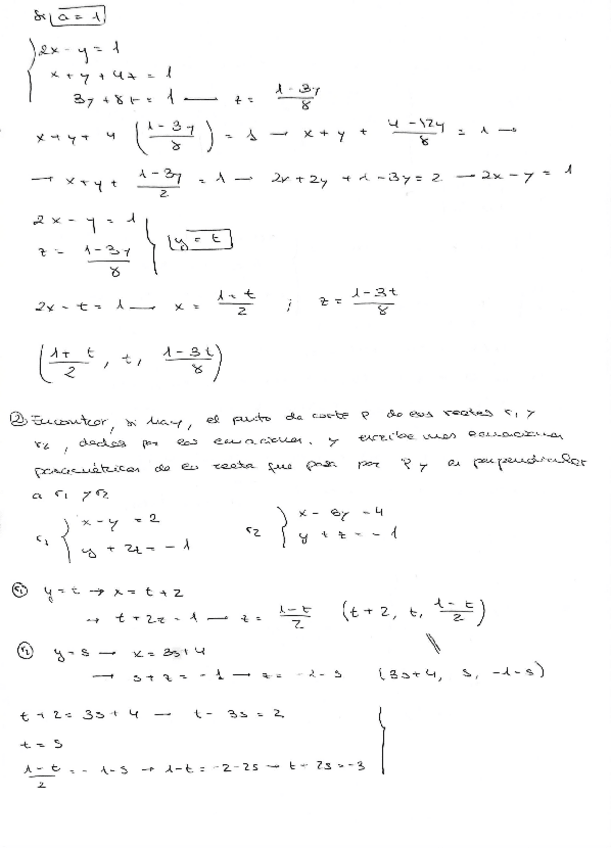 Si a = 1
2x - y = 1
x + y + 4z = 1
3y + 8z = 1 → z = (1 - 3y)/8
x + y + 4 ((1 - 3y)/8) = 1 → x + y + (4 - 12y)/8 = 1 →
→ x + y + (1 - 3y)/2 = 1 → 2x + 2y + 1 - 3y = 2 → 2x - y = 1
2x - y = 1
z = (1 - 3y)/8 } y = t
2x - t = 1 → x = (1 + t)/2 ; z = (1 - 3t)/8
((1 + t)/2, t, (1 - 3t)/8)
② Encontrar, si hay, el punto de corte P de las rectas r1 y
r2, dadas por las ecuaciones, y escribe unas ecuaciones
paramétricas de la recta que pasa por P y es perpendicular
a r1 y r2
r1 { x - y = 2 r2 { x - 3y = 4
y + 2z = -1 y + z = -1
r1 y = t → x = t + 2
→ t + 2z = 1 → z = (1 - t)/2 (t + 2, t, (1 - t)/2)
r2 y = s → x = 3s + 4
→ s + z = -1 → z = -1 - s (3s + 4, s, -1 - s)
t + 2 = 3s + 4 → t - 3s = 2
t = s
(1 - t)/2 = -1 - s → 1 - t = -2 - 2s → t - 2s = -3